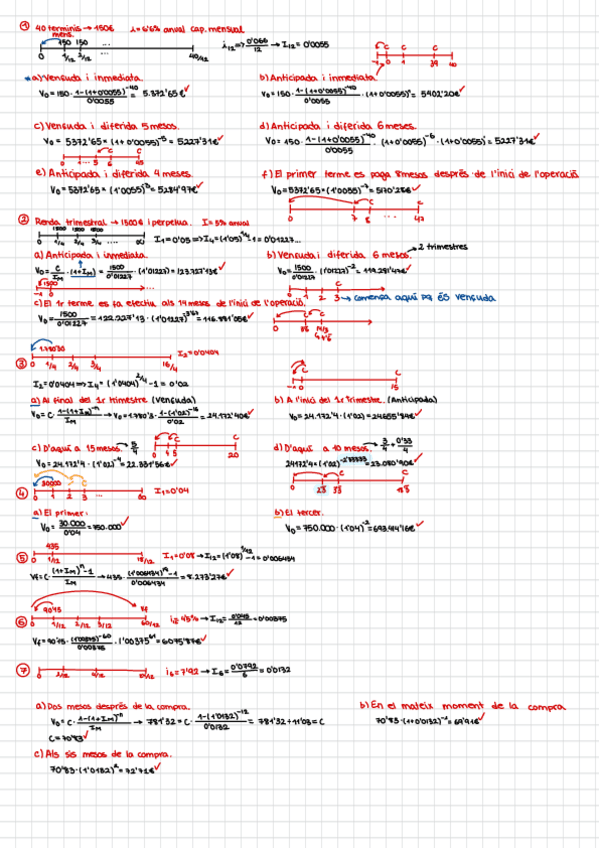 ① 40 terminis → 150€ i=6'6% anual cap. mensual
mens.
150 150
0 1/12 2/12 ... 40/12
i₁₂ => 0'066/12 → I₁₂ = 0'0055
C C C
-1 0 1 39 40
a) Vençuda i inmediata.
V₀ = 150 · 1-(1+0'0055)^-40 / 0'0055 = 5.372'65€ ✓
b) Anticipada i inmediata
V₀ = 150 · 1-(1+0'0055)^-40 / 0'0055 · (1+0'0055)¹ = 5402'20€ ✓
c) Vençuda i diferida 5 mesos.
V₀ = 5372'65 · (1+0'0055)^-5 = 5227'31€ ✓
C C
0 1 ... 5 6 45
d) Anticipada i diferida 6 mesos.
V₀ = 150 · 1-(1+0'0055)^-40 / 0'0055 · (1+0'0055)^-6 · (1+0'0055)¹ = 5227'31€ ✓
e) Anticipada i diferida 4 mesos.
V₀ = 5372'65 · (1'0055)^-3 = 5284'97€ ✓
f) El primer terme es paga 8 mesos després de l'inici de l'operació
V₀ = 5372'65 · (1'0055)^-7 = 5170'25€ ✓
0 7 8 ... 47
② Renda trimestral → 1500€ i perpetua. I = 5% anual
1500 1500 1500
0 1/4 2/4 3/4 ... ∞
I₁ = 0'05 => I₄ = (1'05)^1/4 - 1 = 0'01227...
a) Anticipada i inmediata.
V₀ = C/I_M · (1+I_M) = 1500/0'01227 · (1'01227) = 123.727'13€ ✓
1500
b) Vençuda i diferida 6 mesos. → 2 trimestres
V₀ = 1500/0'01227 · (1'01227)^-2 = 119.281'47€ ✓
C
0 1 2 3 → comença aquí pq és vençuda
c) El 1r terme es fa efectiu als 14 mesos de l'inici de l'operació.
V₀ = 1500/0'01227 = 122.227'13 · (1'01227)^-3'67 = 116.881'05€ ✓
C C
③
1.780'30
0 1/4 2/4 3/4 16/4
I₂ = 0'0404
I₂ = 0'0404 => I₄ = (1'0404)^2/4 - 1 = 0'02
C C
-1 0 15
a) Al final del 1r trimestre (vençuda)
V₀ = C · 1-(1+I_M)^-n / I_M → V₀ = 1.780'3 · 1-(1'02)^-16 / 0'02 = 24.172'40€ ✓
b) A l'inici del 1r trimestre. (Anticipada)
V₀ = 24.172'4 · (1'02) = 24655'84€ ✓
c) D'aquí a 15 mesos. → 5/4
V₀ = 24.172'4 · (1'02)^-4 = 22.331'56€ ✓
C C
0 4 5 20
d) D'aquí a 10 mesos. → 3/4 + 0'33/4
24172'4 · (1'02)^-2'33333 = 23.080'90€ ✓
C C
0
④
30000 C
0 1 2 3 ... ∞
I₁ = 0'04
a) El primer:
V₀ = 30.000/0'04 = 750.000 ✓
b) El tercer.
V₀ = 750.000 · (1'04)^-2 = 693.414'16€ ✓
⑤
435
0 1/12 18/12
I₁ = 0'08 → I₁₂ = (1'08)^1/12 - 1 = 0'006434
Vf = C · (1+I_M)^n - 1 / I_M → 435 · (1'006434)^18 - 1 / 0'006434 = 8.273'27€ ✓
⑥
90'45 Vf
0 1/12 2/12 3/12 60/12
I₁₂ = 0'045/12 = 0'00375
· (1'00375)^61 = 6075'87€ ✓
⑦
0 1/12
i₆ = 7'92 → I₆ = 0'0792/6 = 0'0132
a) Dos mesos després de la compra.
V₀ = C · 1-(1+I_M)^-n / I_M → 781'32 = C · 1-(1'0132)^-12 / 0'0132 = 781'32 ÷ 11'03 = C
C = 70'83 ✓
b) En el mateix moment de la compra
70'83 · (1+0'0132)^-1 = 69'91€ ✓
c) Als sis mesos de la compra.
70'83 · (1'0132)² = 72'71€ ✓